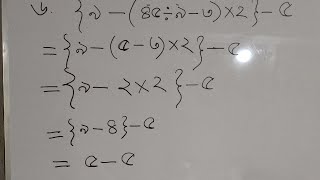 ৬. {৯-(৪৫÷৯-৩)×2}-৫
={৯-(৫-৩)×2}-৫
={৯-2×2}-৫
={৯-8}-৫
= ৫-৫